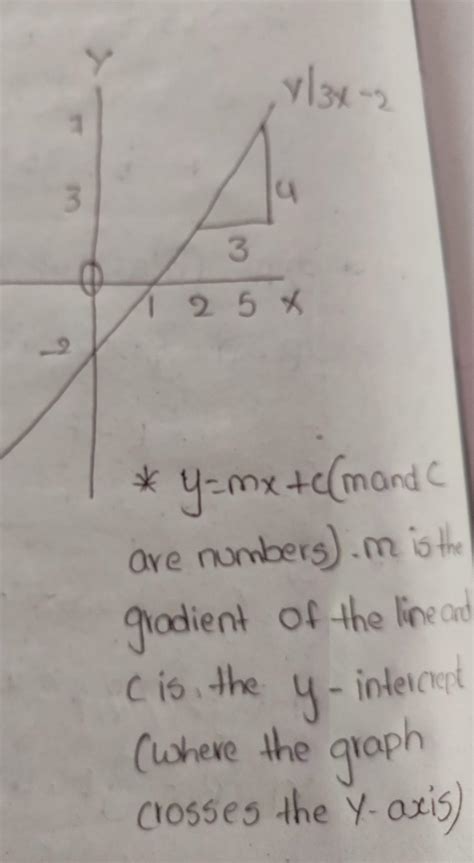 Y
V|3x-2
7
3
4
3
0
1 2 5 X
-2
* y=mx+c(m and c
are numbers). m is the
gradient of the line and
c is. the y-intercrept
(where the graph
crosses the Y-axis)